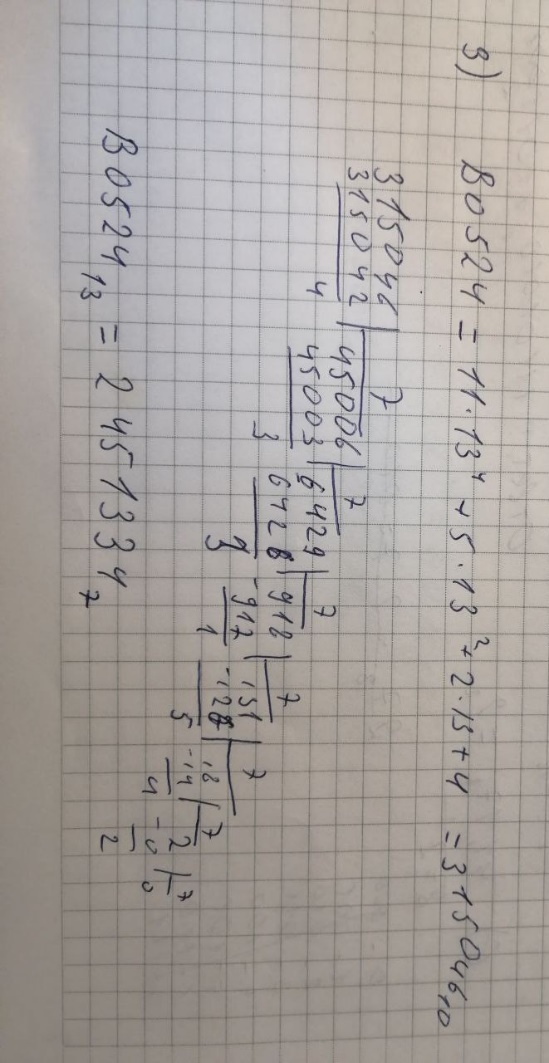 3) B0524 = 11·13⁴ + 5·13² + 2·13 + 4 = 315046₁₀
315046 | 7
315042 | 45006 | 7
4 45003 | 6429 | 7
3 6426 | 918 | 7
3 -917 | 131 | 7
1 -126 | 18 | 7
5 -14 | 2 | 7
4 -0 | 0
2
B0524₁₃ = 2451334₇